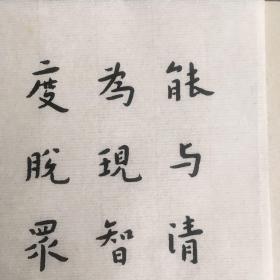 能与清
為現智
度脫眾